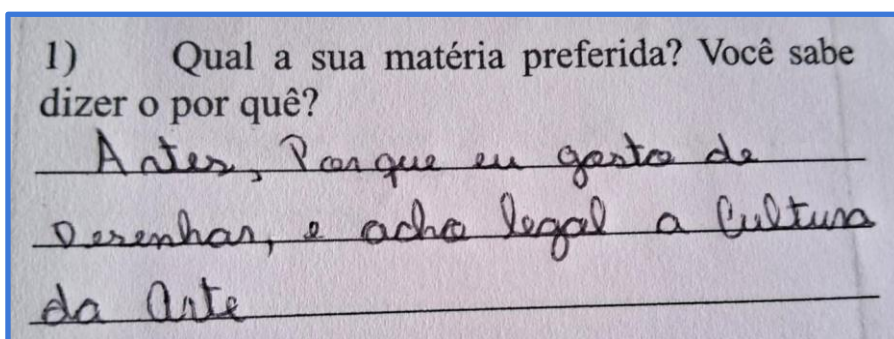 1) Qual a sua matéria preferida? Você sabe
dizer o por quê?
Artes, Porque eu gosto de
Desenhar, e acho legal a Cultura
da Arte